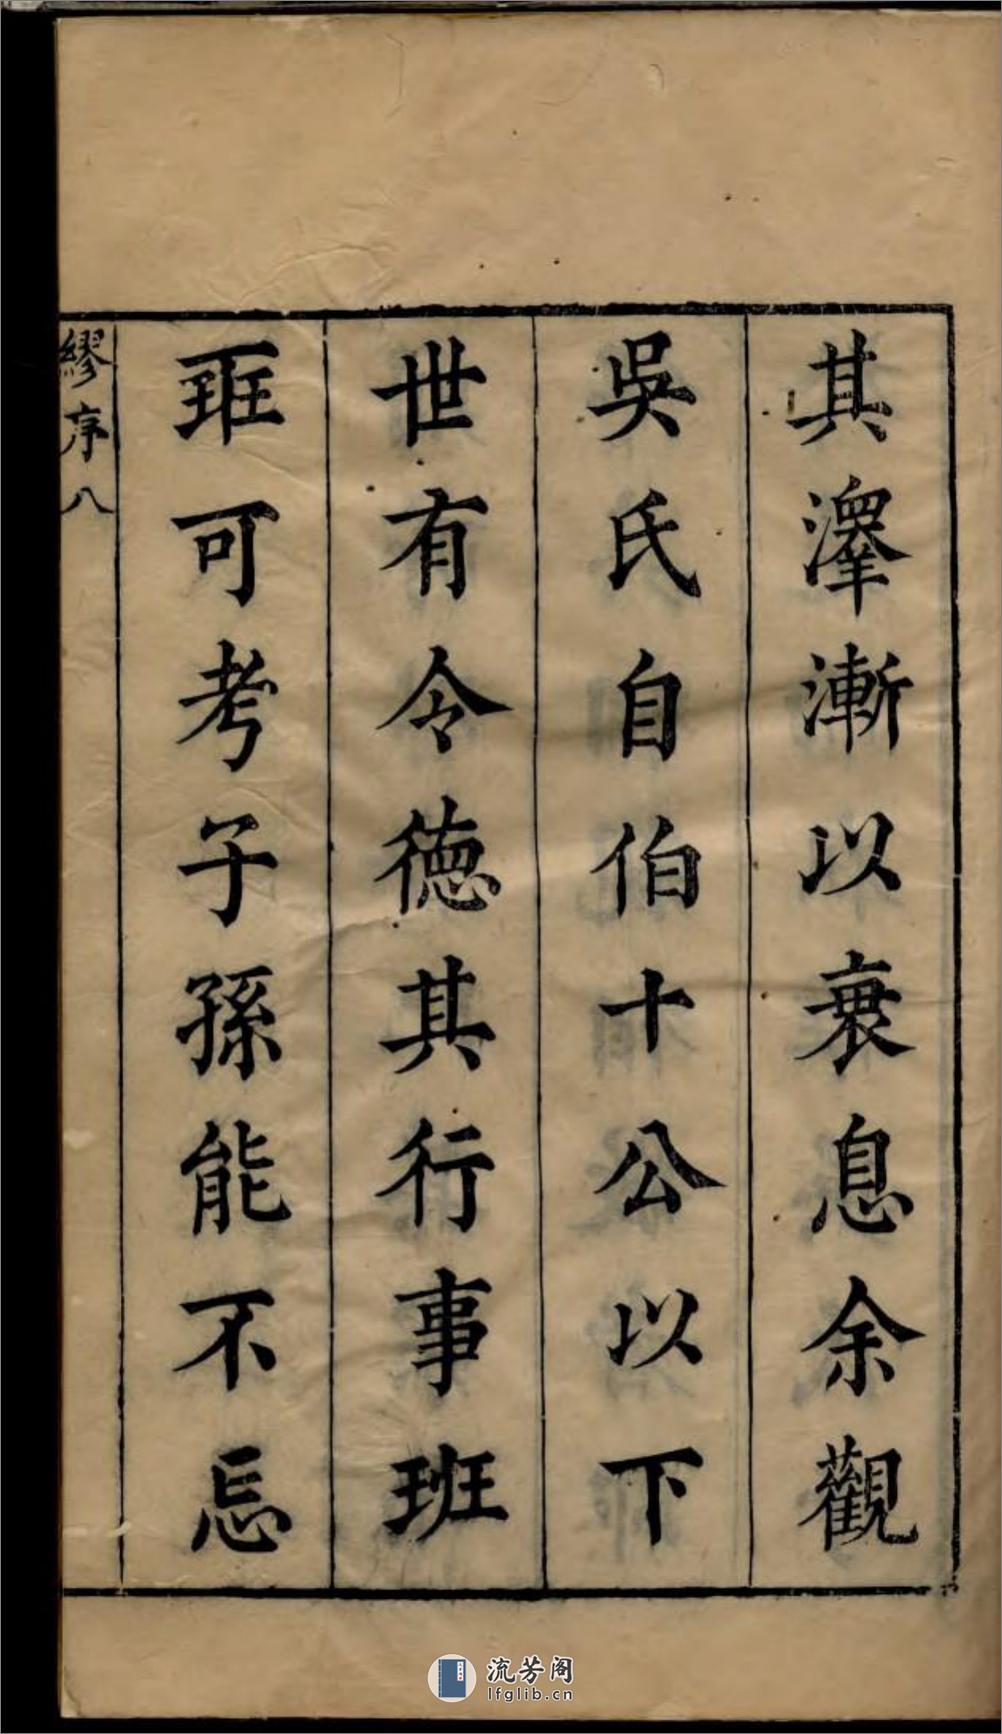 其澤漸以衰息余觀
吳氏自伯十公以下
世有令德其行事班
班可考子孫能不忘
繆序 八
流芳阁
lfglib.cn